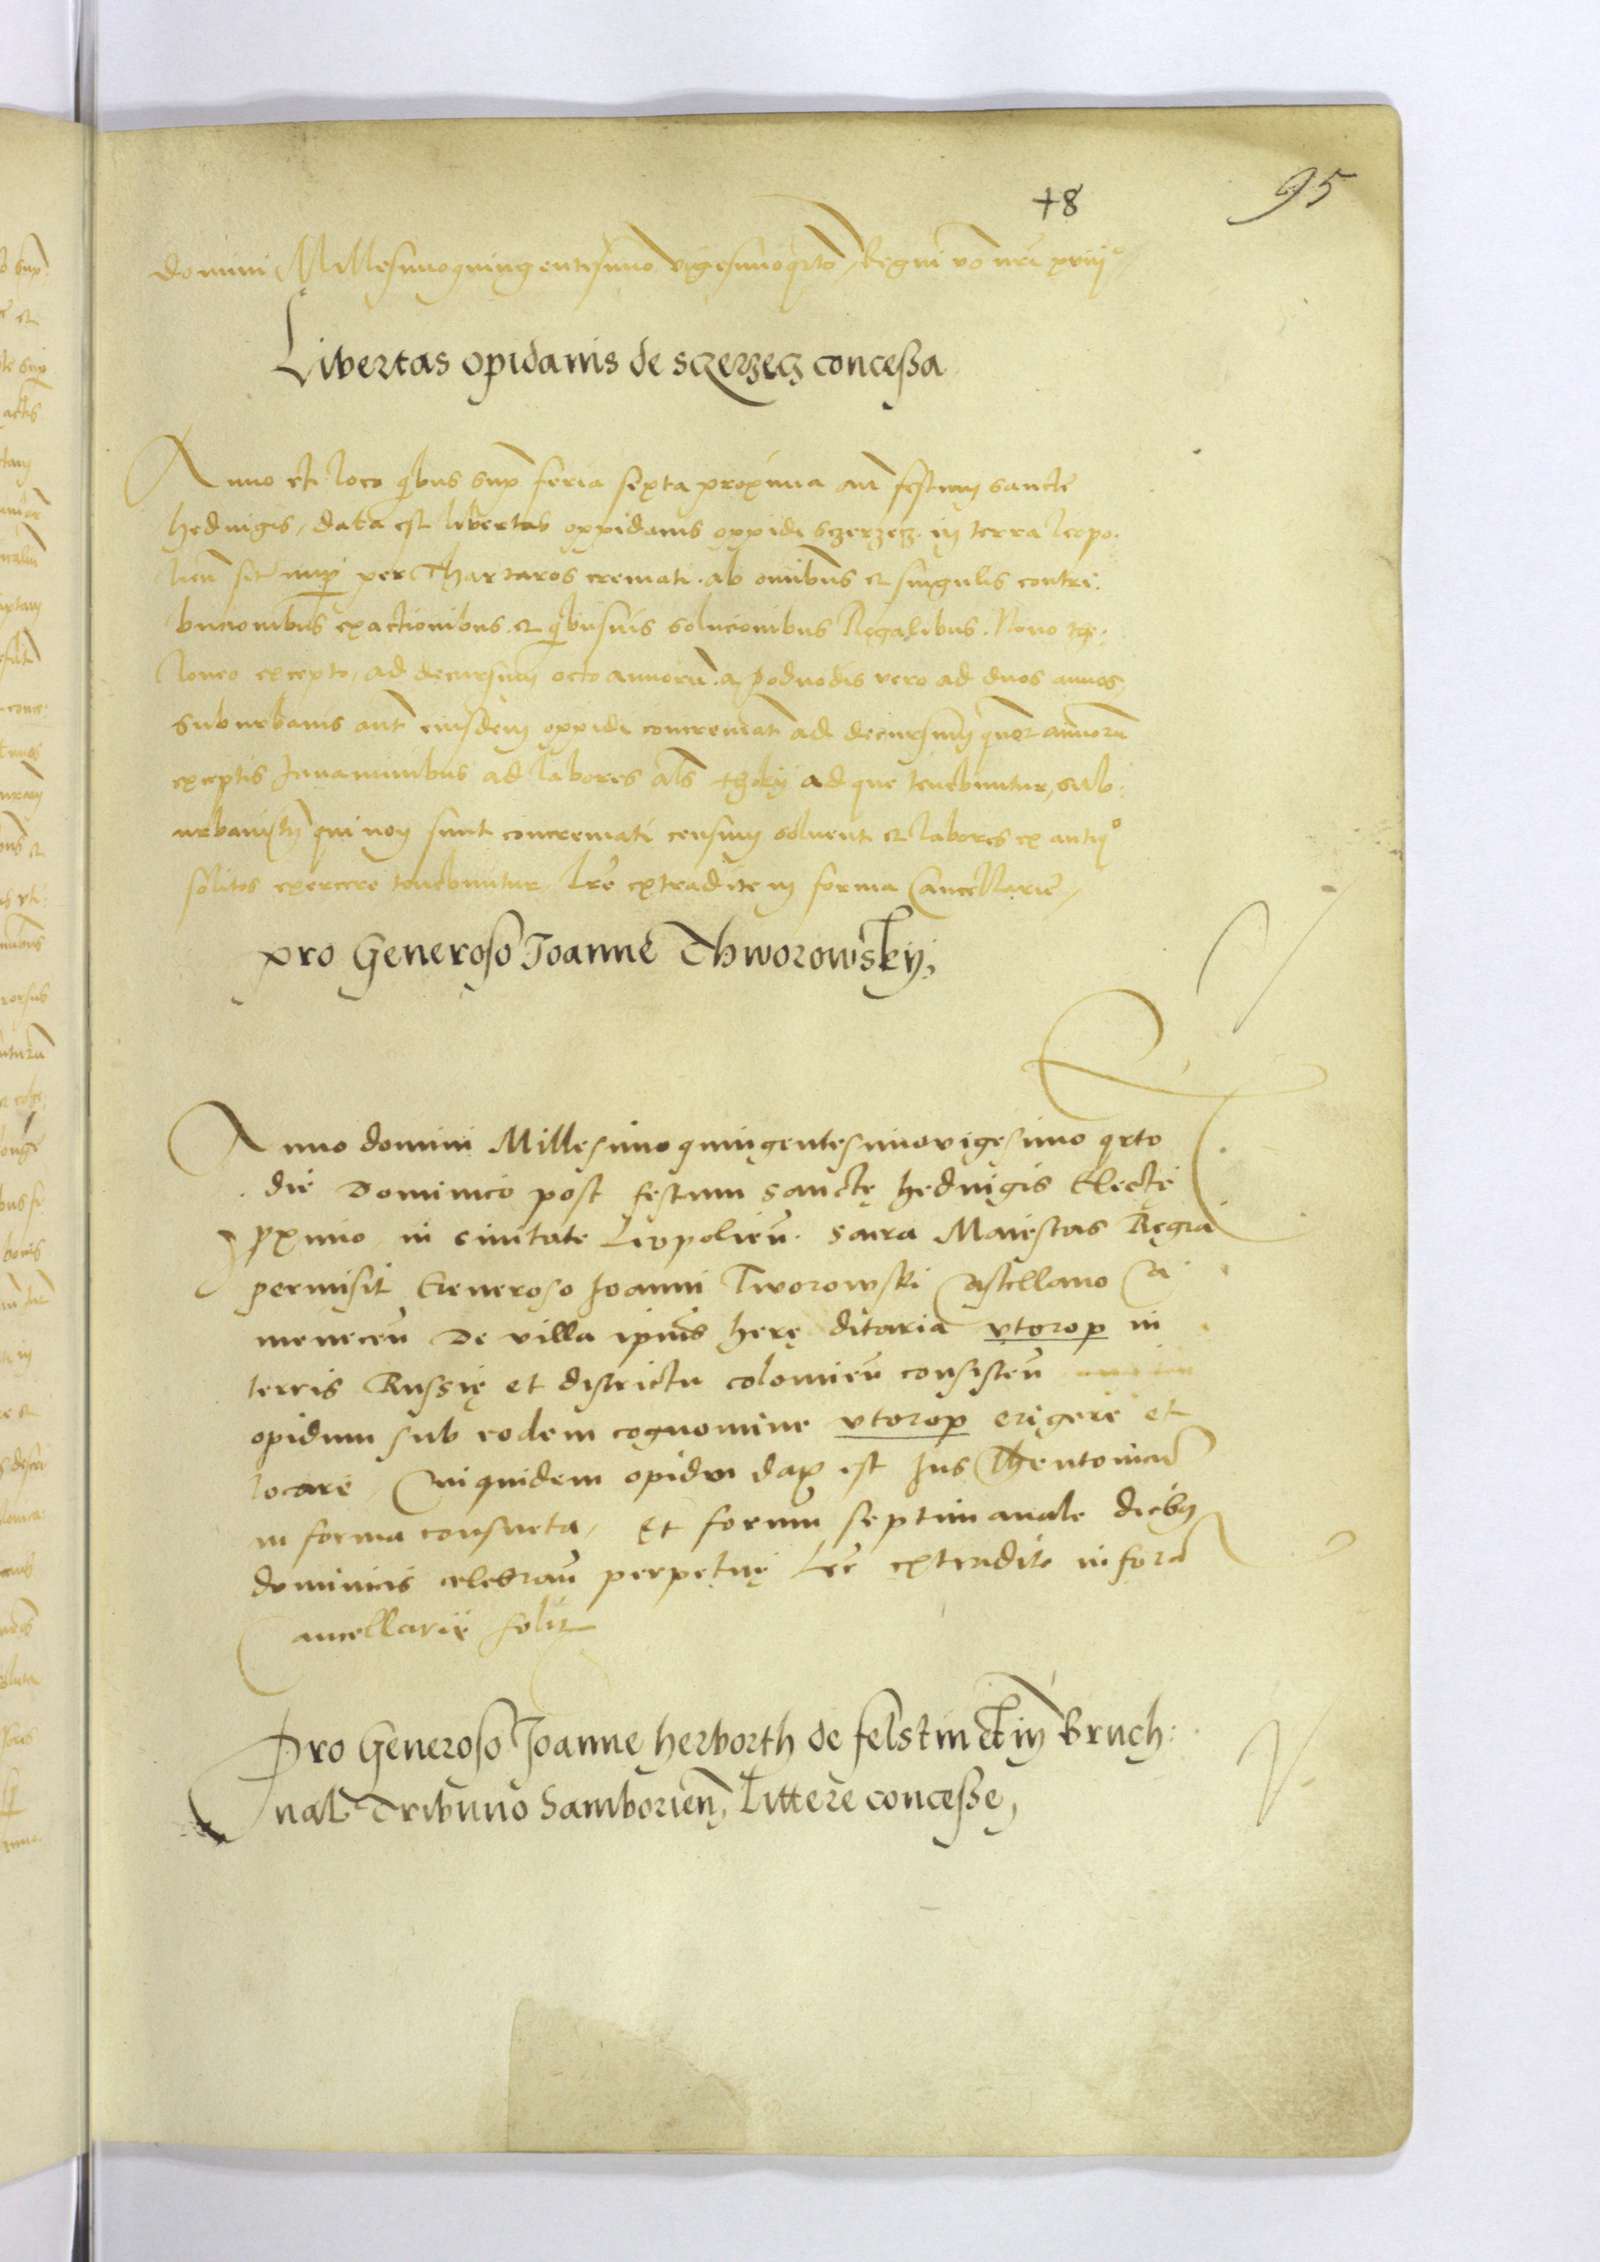 +8
95
domini Millesimoquingentesimo vigesimoqrto, Regni vo nri xviij°
Libertas opidanis de sczerzecz concessa
Anno et loco qbus sup feria sexta proxima an festum sancte
hedvigis, data est libertas oppidanis oppidi sczerzecz in terra leopo.
lien sit nup per Thartaros cremati. ab omnibus et singulis contri.
bucionibus exactionibus et qbusuis solucionibus Regalibus. Nouo the.
loneo excepto, ad decursum octo annorum. a podvodis vero ad duos annos,
suburbanis aut eiusdem oppidi concremati ad decursum quor annorum
exceptis Juvaminibus ad labores als tholoky ad que tenebuntur, sub:
urbani tn qui non sunt concremati censum soluent et labores ex antiq°
solitos exercere tenebuntur, lre extradite in forma Cancellarie,
pro Generoso Joanne Thworowsky,
Anno domini Millesimo quingentesimovigesimo qrto
die Dominico post festum sanctę hedvigis Electe
pximo in ciuitate Leopolien. sacra Maiestas Regia
permisit Generoso Joanni Tworowski Castellano Ca
menecen De villa ipius herę ditaria vtorop in
terris Russię et districtu colomien consisten
opidum sub eodem cognomine vtorop erigere et
locare, Cui quidem opido dap est Jus Theutonicu
in forma consueta, Et forum septimanale diebus
dominicis celebran perpetuę Lre extradite in for
Cancellarie solit
Pro Generoso Joanne herborth de felstin et in Bruch:
nal Tribuno Samborien, Littere concesse,